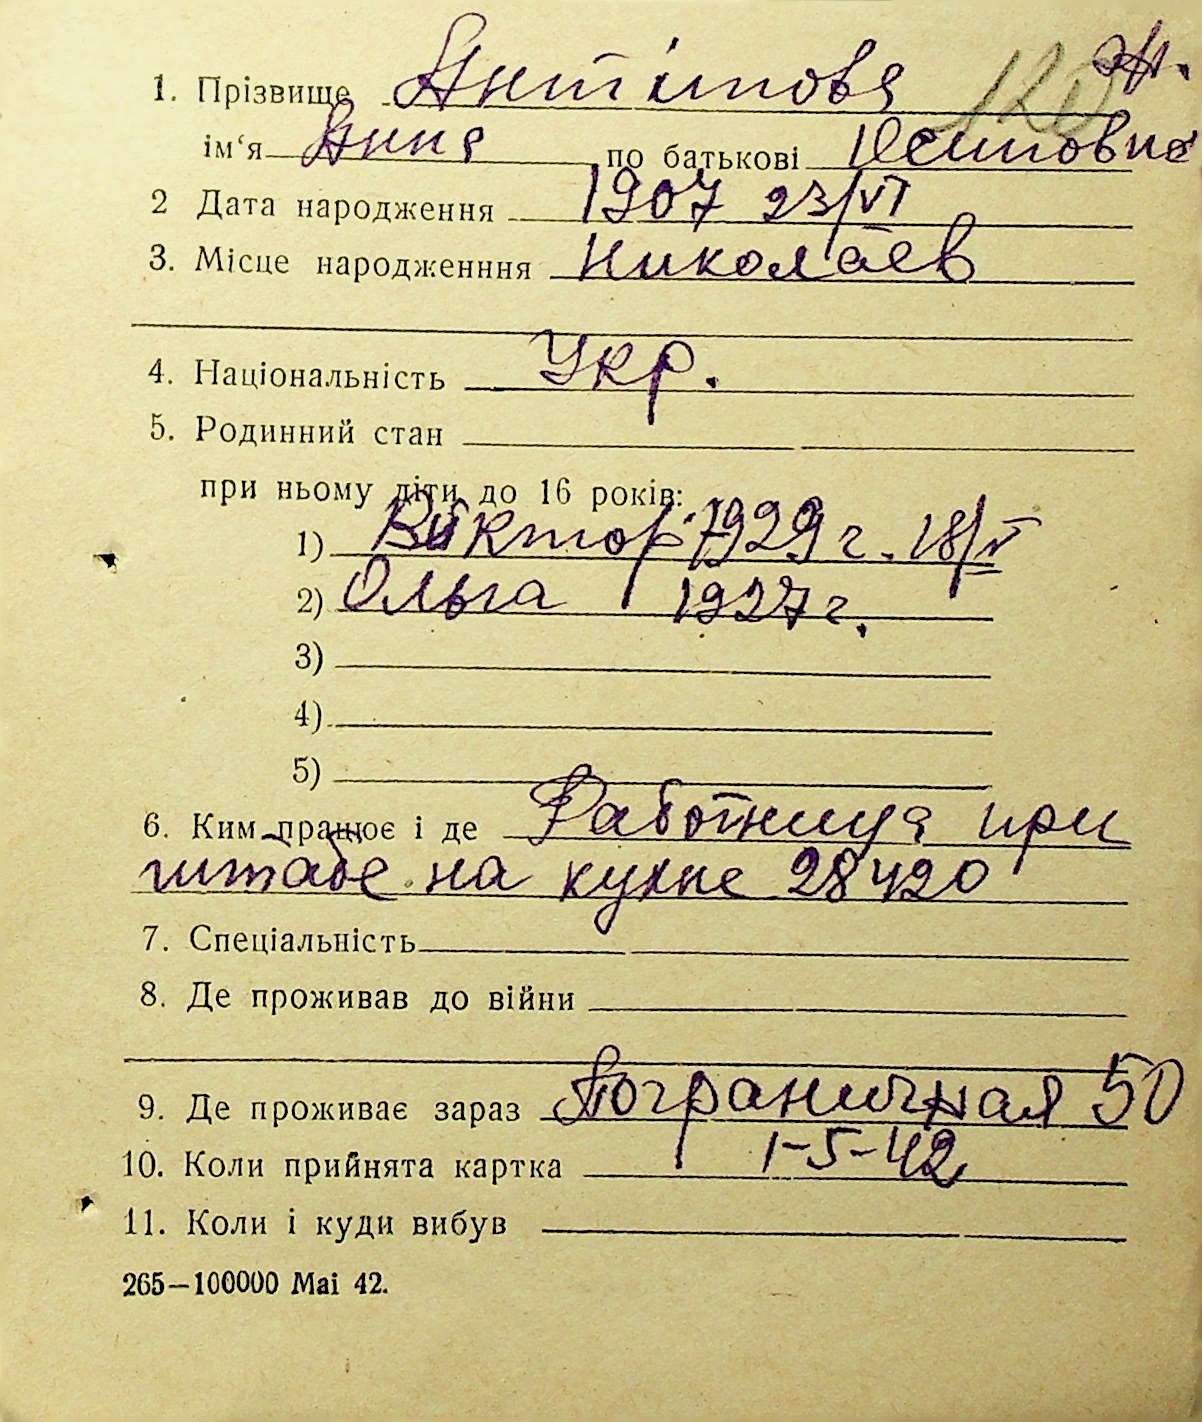 120
1. Прізвище Антіповa
ім‘я Анна по батькові Осиповна
2 Дата народження 1907 23/VI
3. Місце народженння Николаев
4. Національність Укр.
5. Родинний стан
при ньому діти до 16 років:
1) Виктор 1929 г. 18/V
2) Ольга 1927 г.
3)
4)
5)
6. Ким працює і де Работница при
штабе на кухне 28420
7. Спеціальність
8. Де проживав до війни
9. Де проживає зараз Пограничная 50
10. Коли прийнята картка 1-5-42
11. Коли і куди вибув
265—100000 Mai 42.